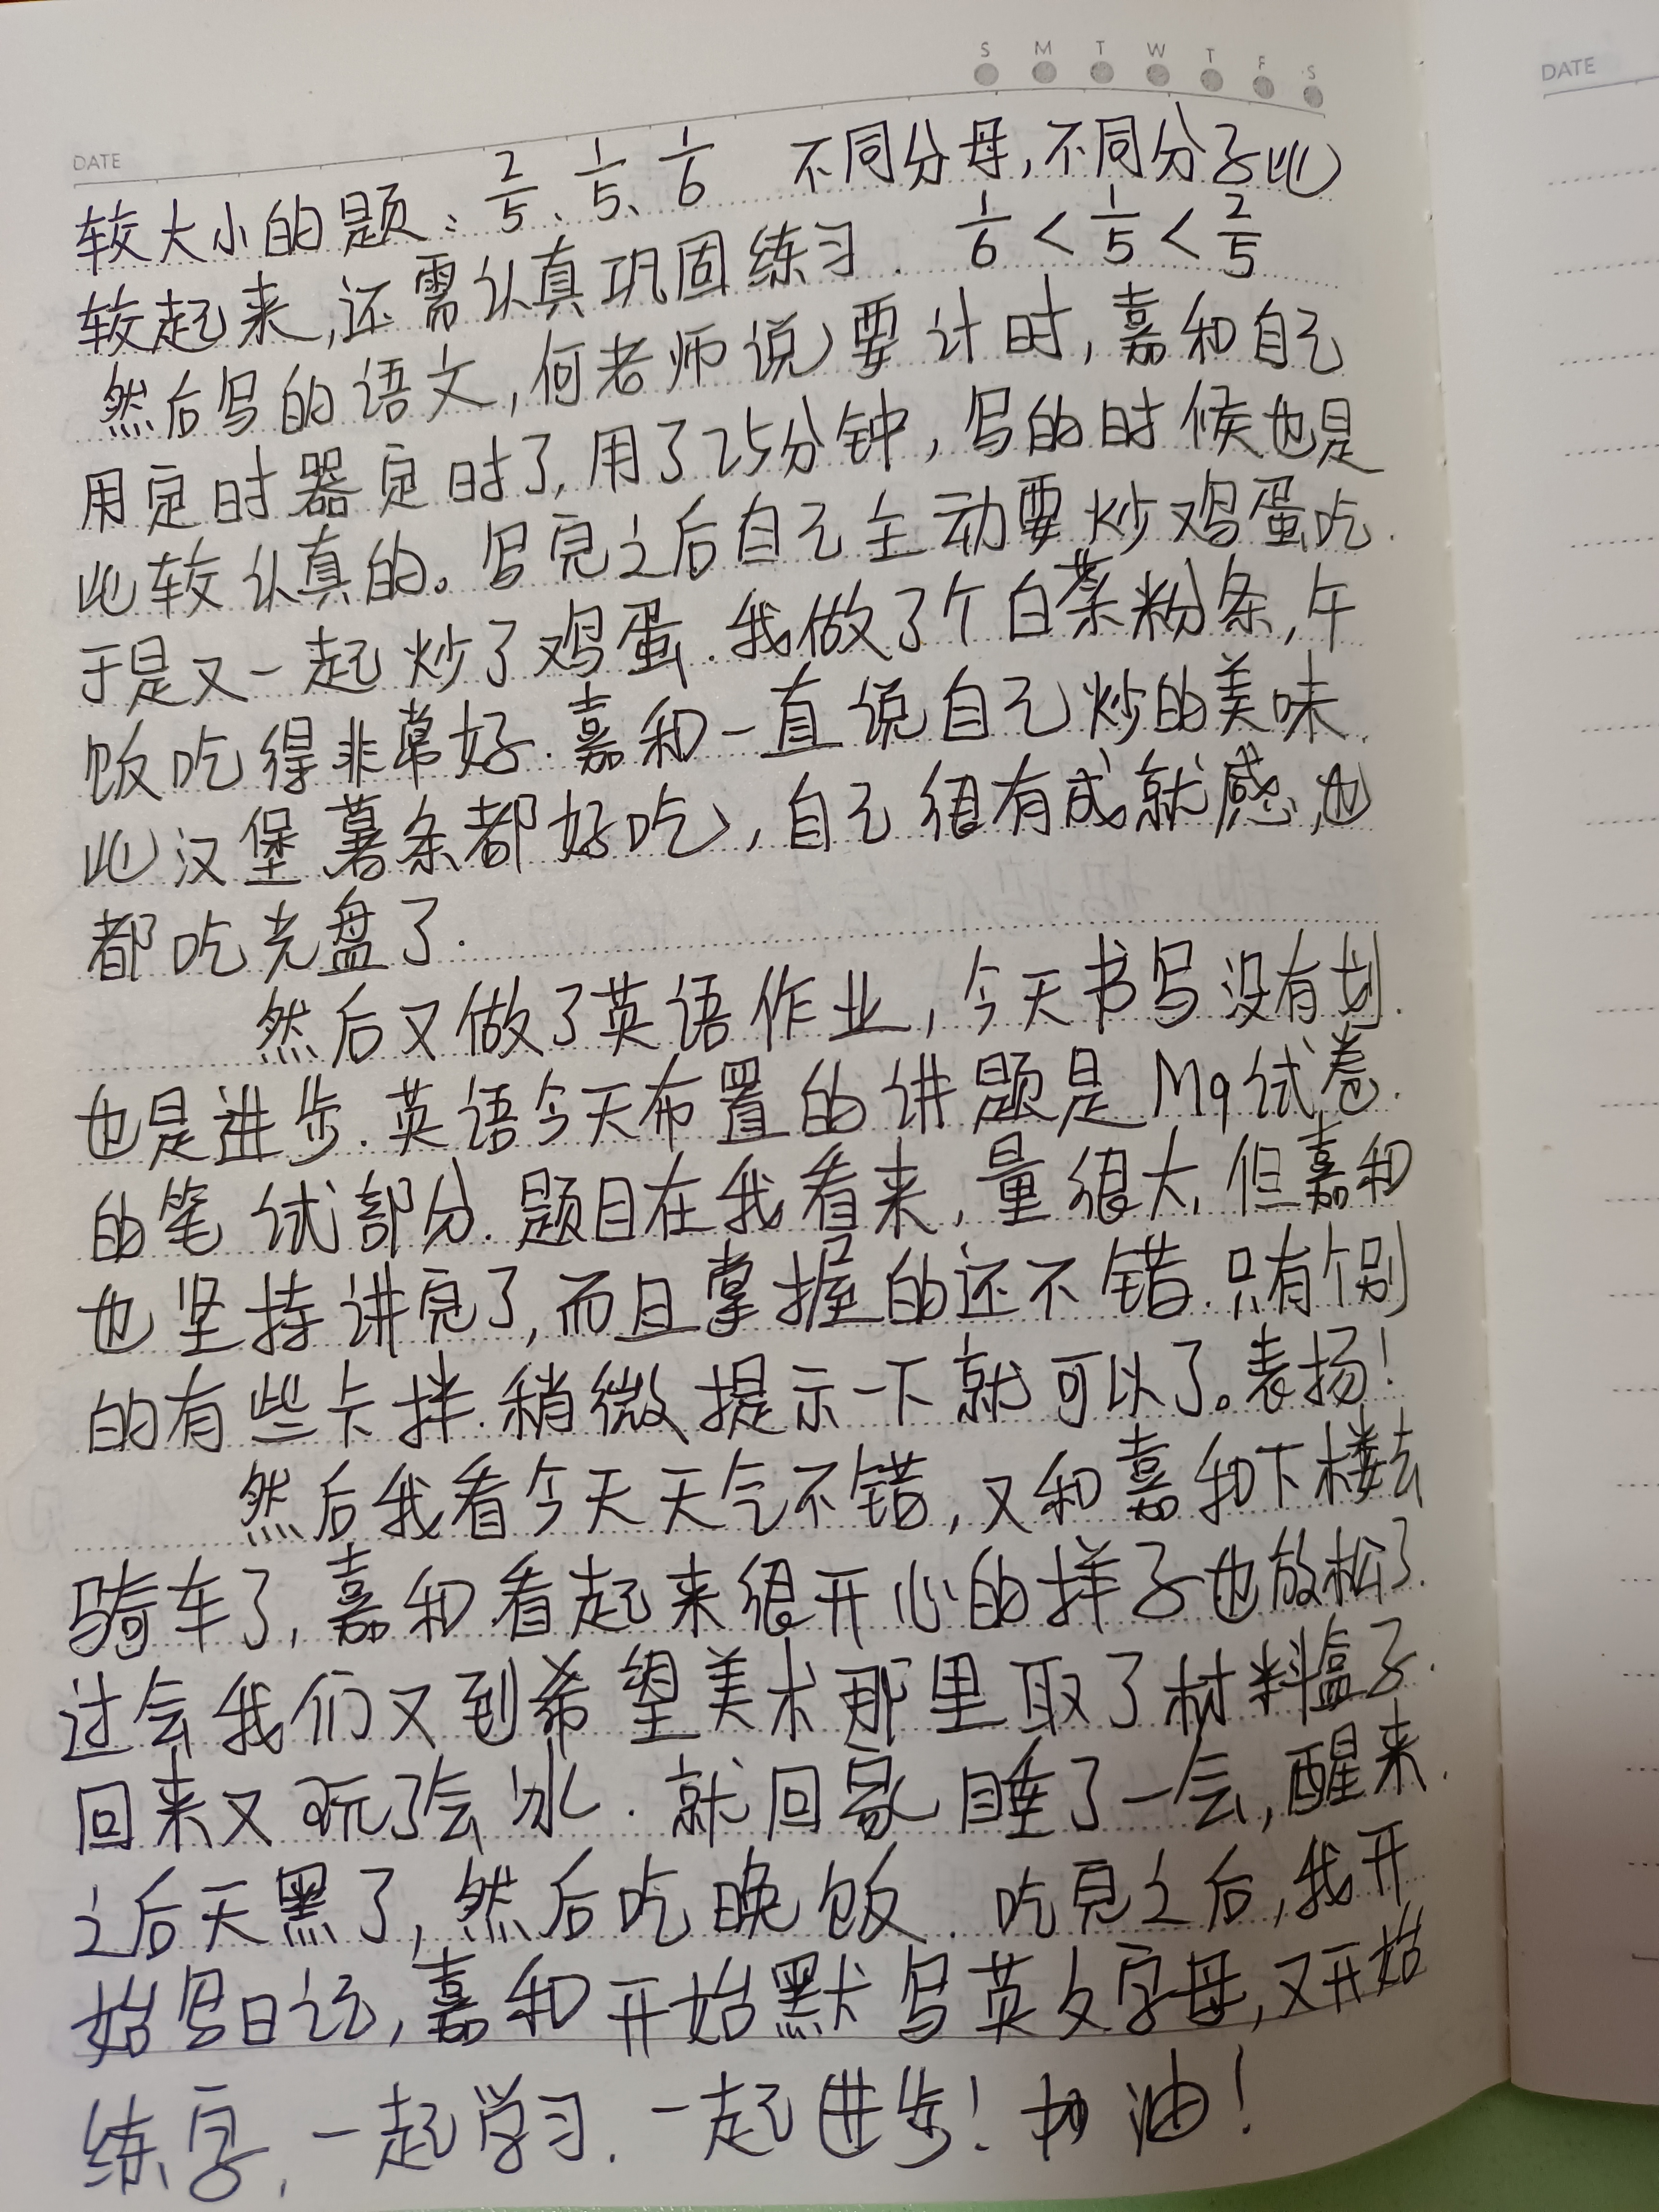 S M T W T F S
DATE
DATE
较大小的题: 2/5、1/5、1/6 不同分母,不同分子比
较起来,还需认真巩固练习. 1/6 < 1/5 < 2/5
然后写的语文,何老师说要计时,嘉和自己
用定时器定时了,用了25分钟,写的时候也是
比较认真的。写完之后自己主动要炒鸡蛋吃.
于是又一起炒了鸡蛋.我做了个白菜粉条,午
饭吃得非常好.嘉和一直说自己炒的美味.
比汉堡薯条都好吃,自己很有成就感,也
都吃光盘了.
然后又做了英语作业,今天书写没有划.
也是进步.英语今天布置的讲题是M9试卷.
的笔试部分.题目在我看来,量很大,但嘉和
也坚持讲完了,而且掌握的还不错.只有个别
的有些卡拌.稍微提示一下就可以了。表扬!
然后我看今天天气不错,又和嘉和下楼去
骑车了,嘉和看起来很开心的样子也放松了.
过会我们又到希望美术那里取了材料盒子.
回来又玩了会冰.就回家睡了一会,醒来.
之后天黑了,然后吃晚饭.吃完之后,我开
始写日记,嘉和开始默写英文字母,又开始
练字,一起学习.一起进步!加油!